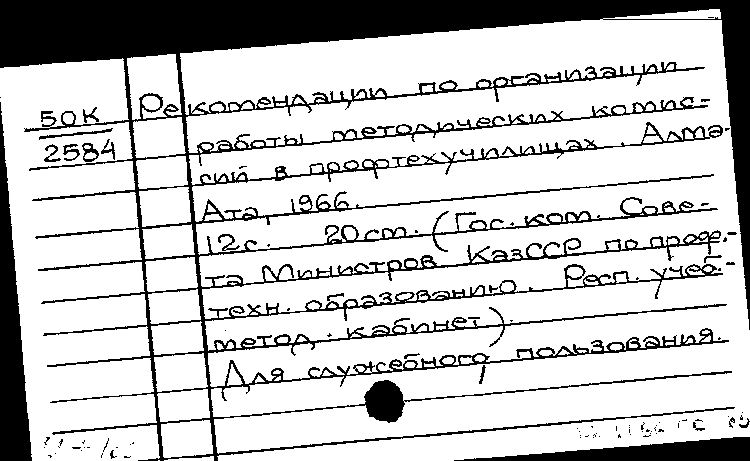 50К
2584
Рекомендации по организации
работы методических комис=
сий в профтехучилищах. Алма-
Ата, 1966.
12с. 20cm. (Гос. ком. Сове=
та Министров КазССР по проф.-
техн. образованию. Респ. учеб.-
метод. кабинет).
Для служебного пользования.